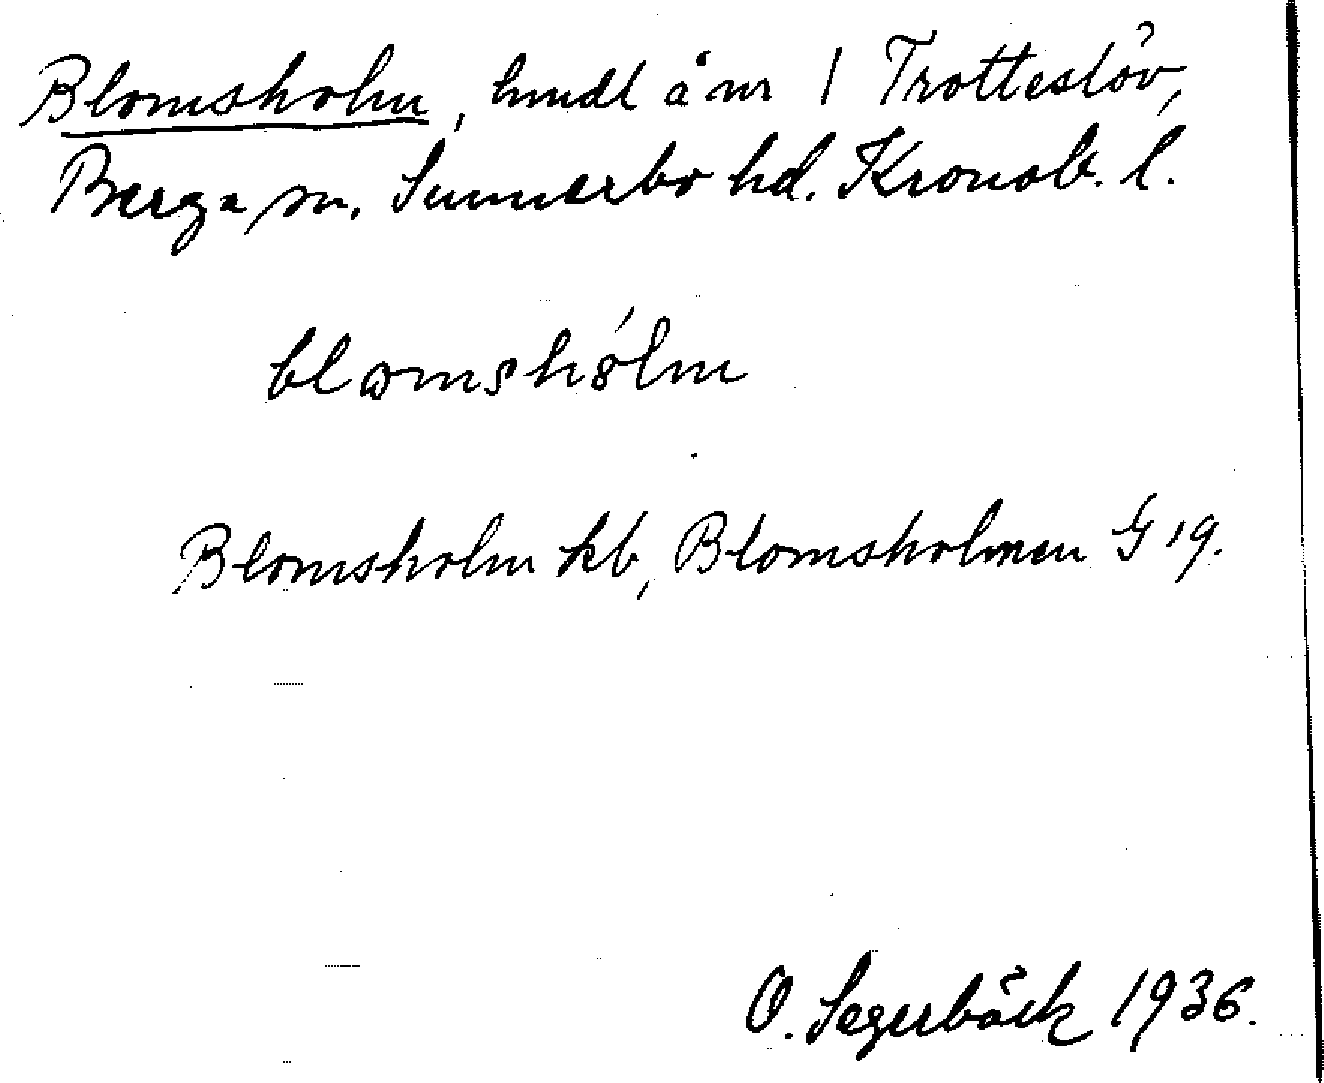 Blomsholm, hmdl å nr 1 Trotteslöv,
Berga sn. Sunnerbo hd. Kronob. l.
blomshólm
Blomsholm kb, Blomsholmen G 19.
O. Segerbäck 1936.